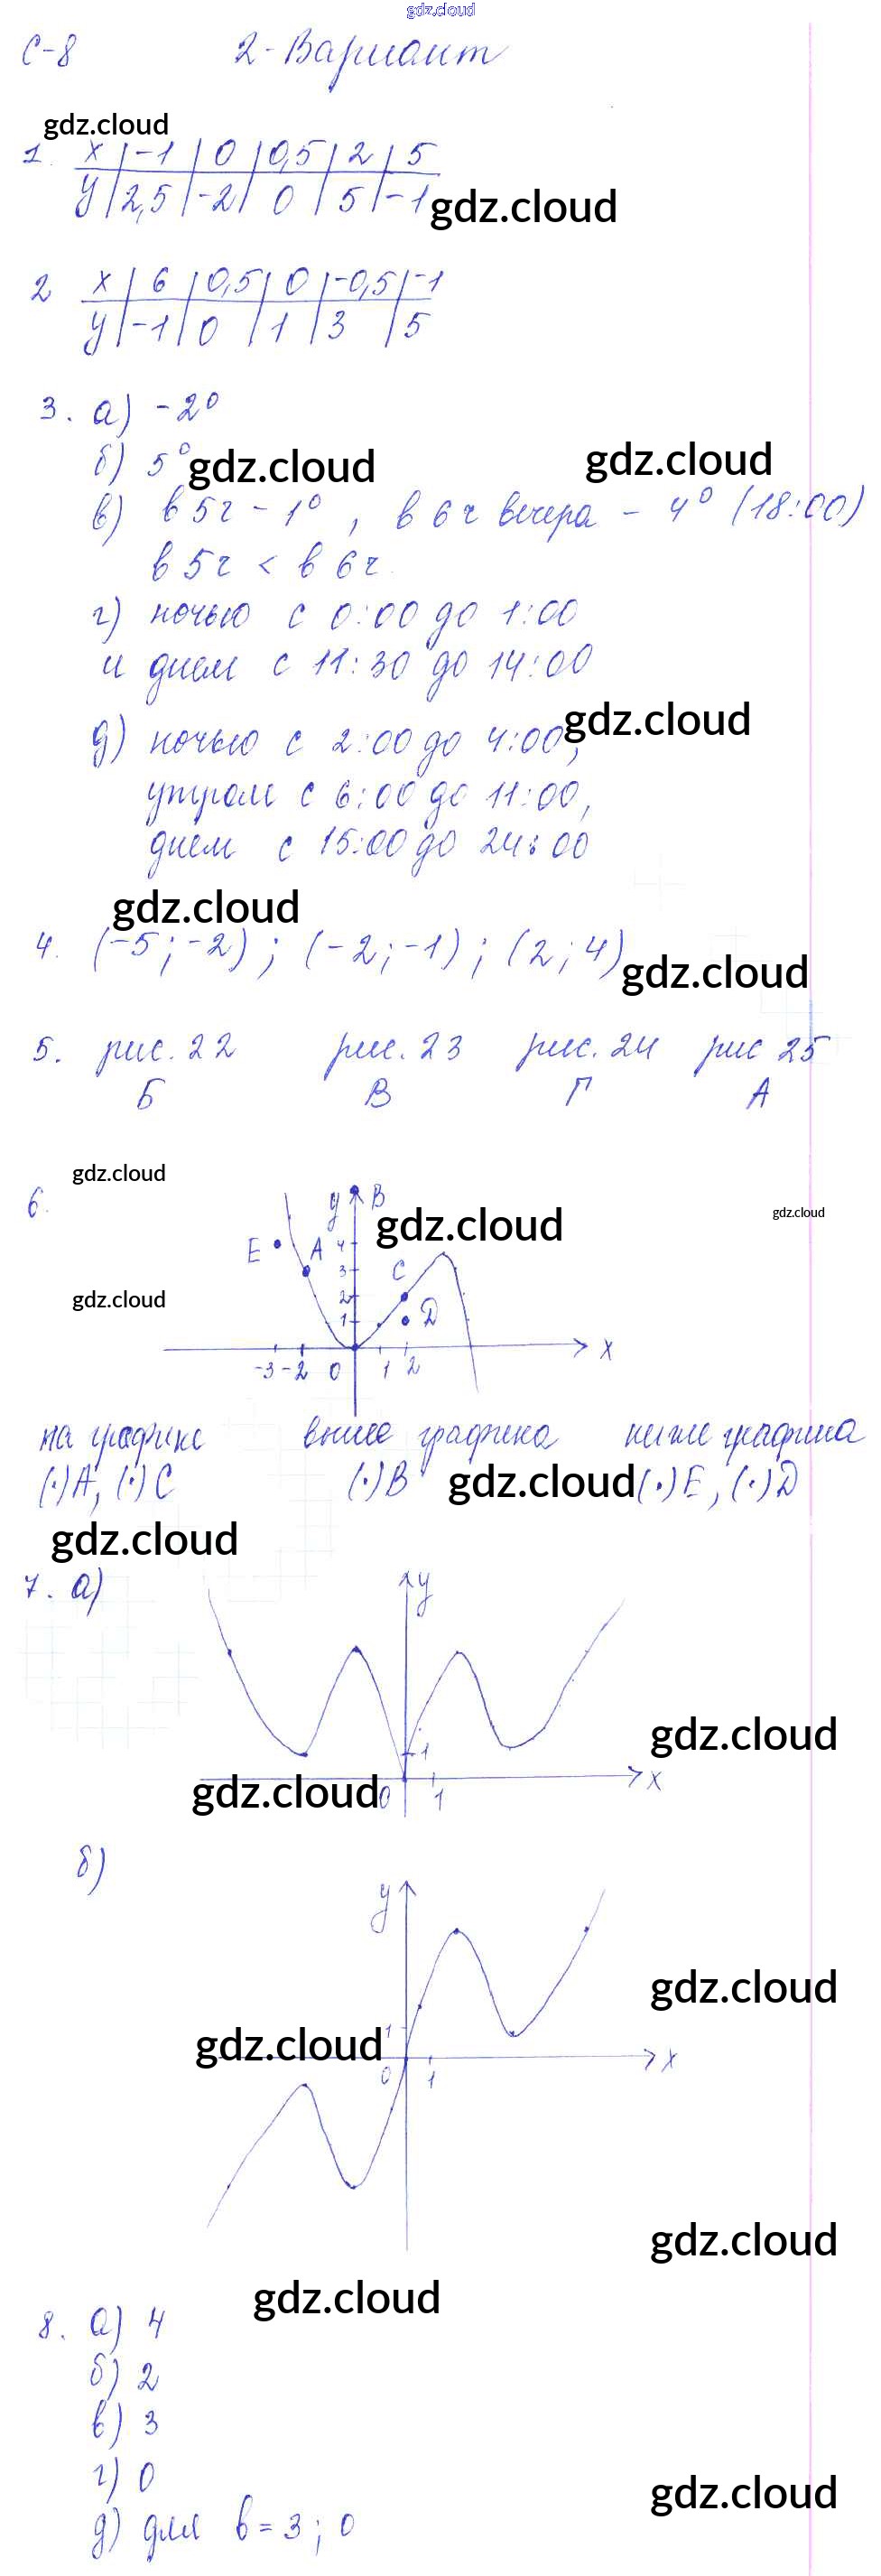 gdz.cloud
С-8 2-Вариант
gdz.cloud
1. x | -1 | 0 | 0,5 | 2 | 5
y | 2,5 | -2 | 0 | 5 | -1
gdz.cloud
2 x | 6 | 0,5 | 0 | -0,5 | -1
y | -1 | 0 | 1 | 3 | 5
3. а) -2⁰
б) 5⁰
gdz.cloud gdz.cloud
в) в 5г - 1⁰, в 6 г вечера - 4⁰ (18:00)
в 5г < в 6г
г) ночью с 0:00 до 1:00
и днем с 11:30 до 14:00
gdz.cloud
д) ночью с 2:00 до 4:00,
утром с 6:00 до 11:00,
днем с 15:00 до 24:00
gdz.cloud
4. (-5; -2); (-2; -1); (2; 4)
gdz.cloud
5. рис. 22 рис. 23 рис. 24 рис 25
Б В Г А
gdz.cloud
6.
y B
gdz.cloud
gdz.cloud
E A 4
3 C
gdz.cloud
2
1 D
-3 -2 0 1 2 x
на графике выше графика ниже графика
(·)A, (·)C (·)B gdz.cloud (·)E, (·)D
gdz.cloud
7. а)
y
gdz.cloud
1
gdz.cloud
0 1 x
б)
y
gdz.cloud
1
gdz.cloud
0 1 x
gdz.cloud
gdz.cloud
8. а) 4
б) 2
в) 3
г) 0
gdz.cloud
д) для в = 3; 0